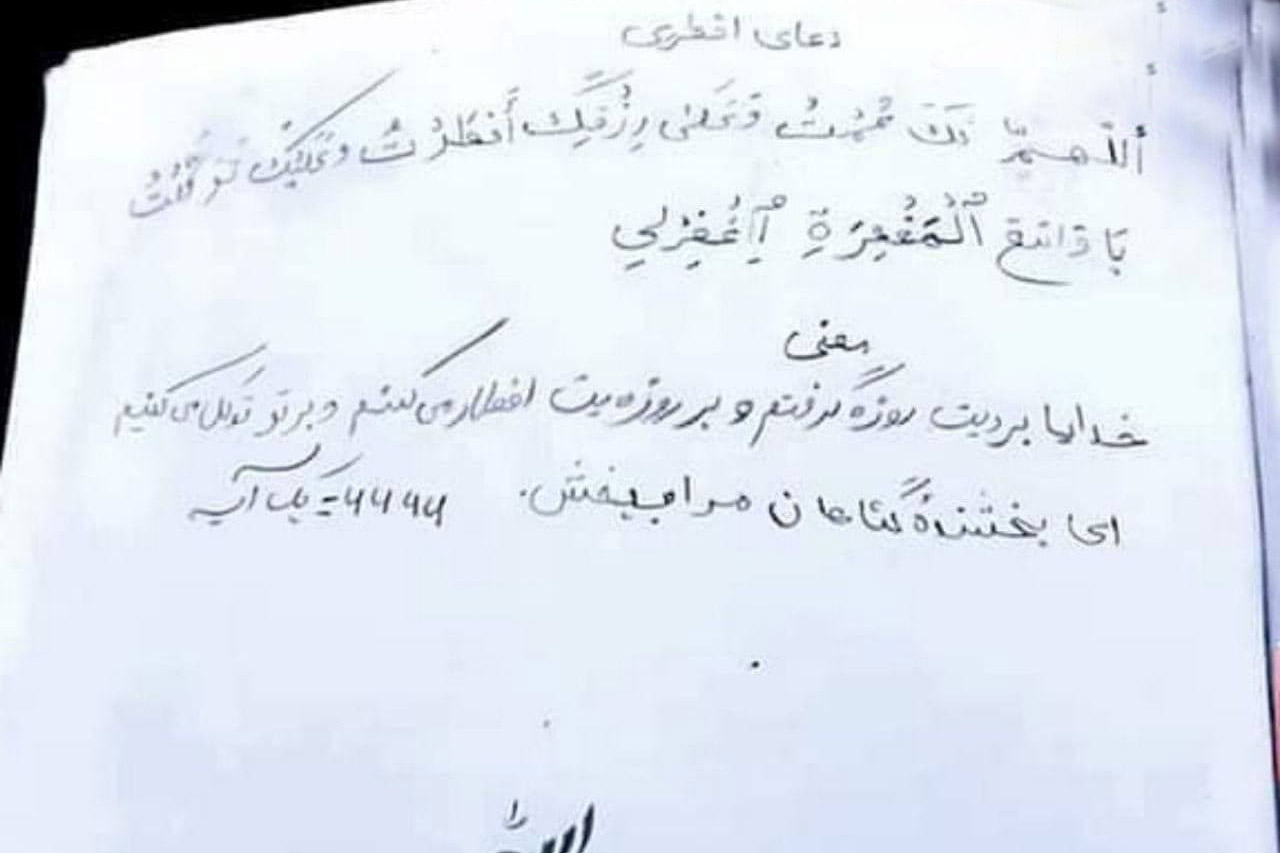 دعای افطری
أللّهمّ لَكَ صُمْتُ وَعَلی رِزْقِكَ أَفْطَرْتُ وَعَلَيْكَ تَوَكَّلْتُ
يَا وَاسِعَ ٱلْمَغْفِرَةِ ٱِغْفِرْلِي
معنی
خدایا برایت روزه گرفتم و بر روزه‌یت افطار می‌کنیم و بر تو توکل می‌کنیم
ای بخشندهٔ گناهان مرا ببخش. ۶۶۶۶ = یک آیه